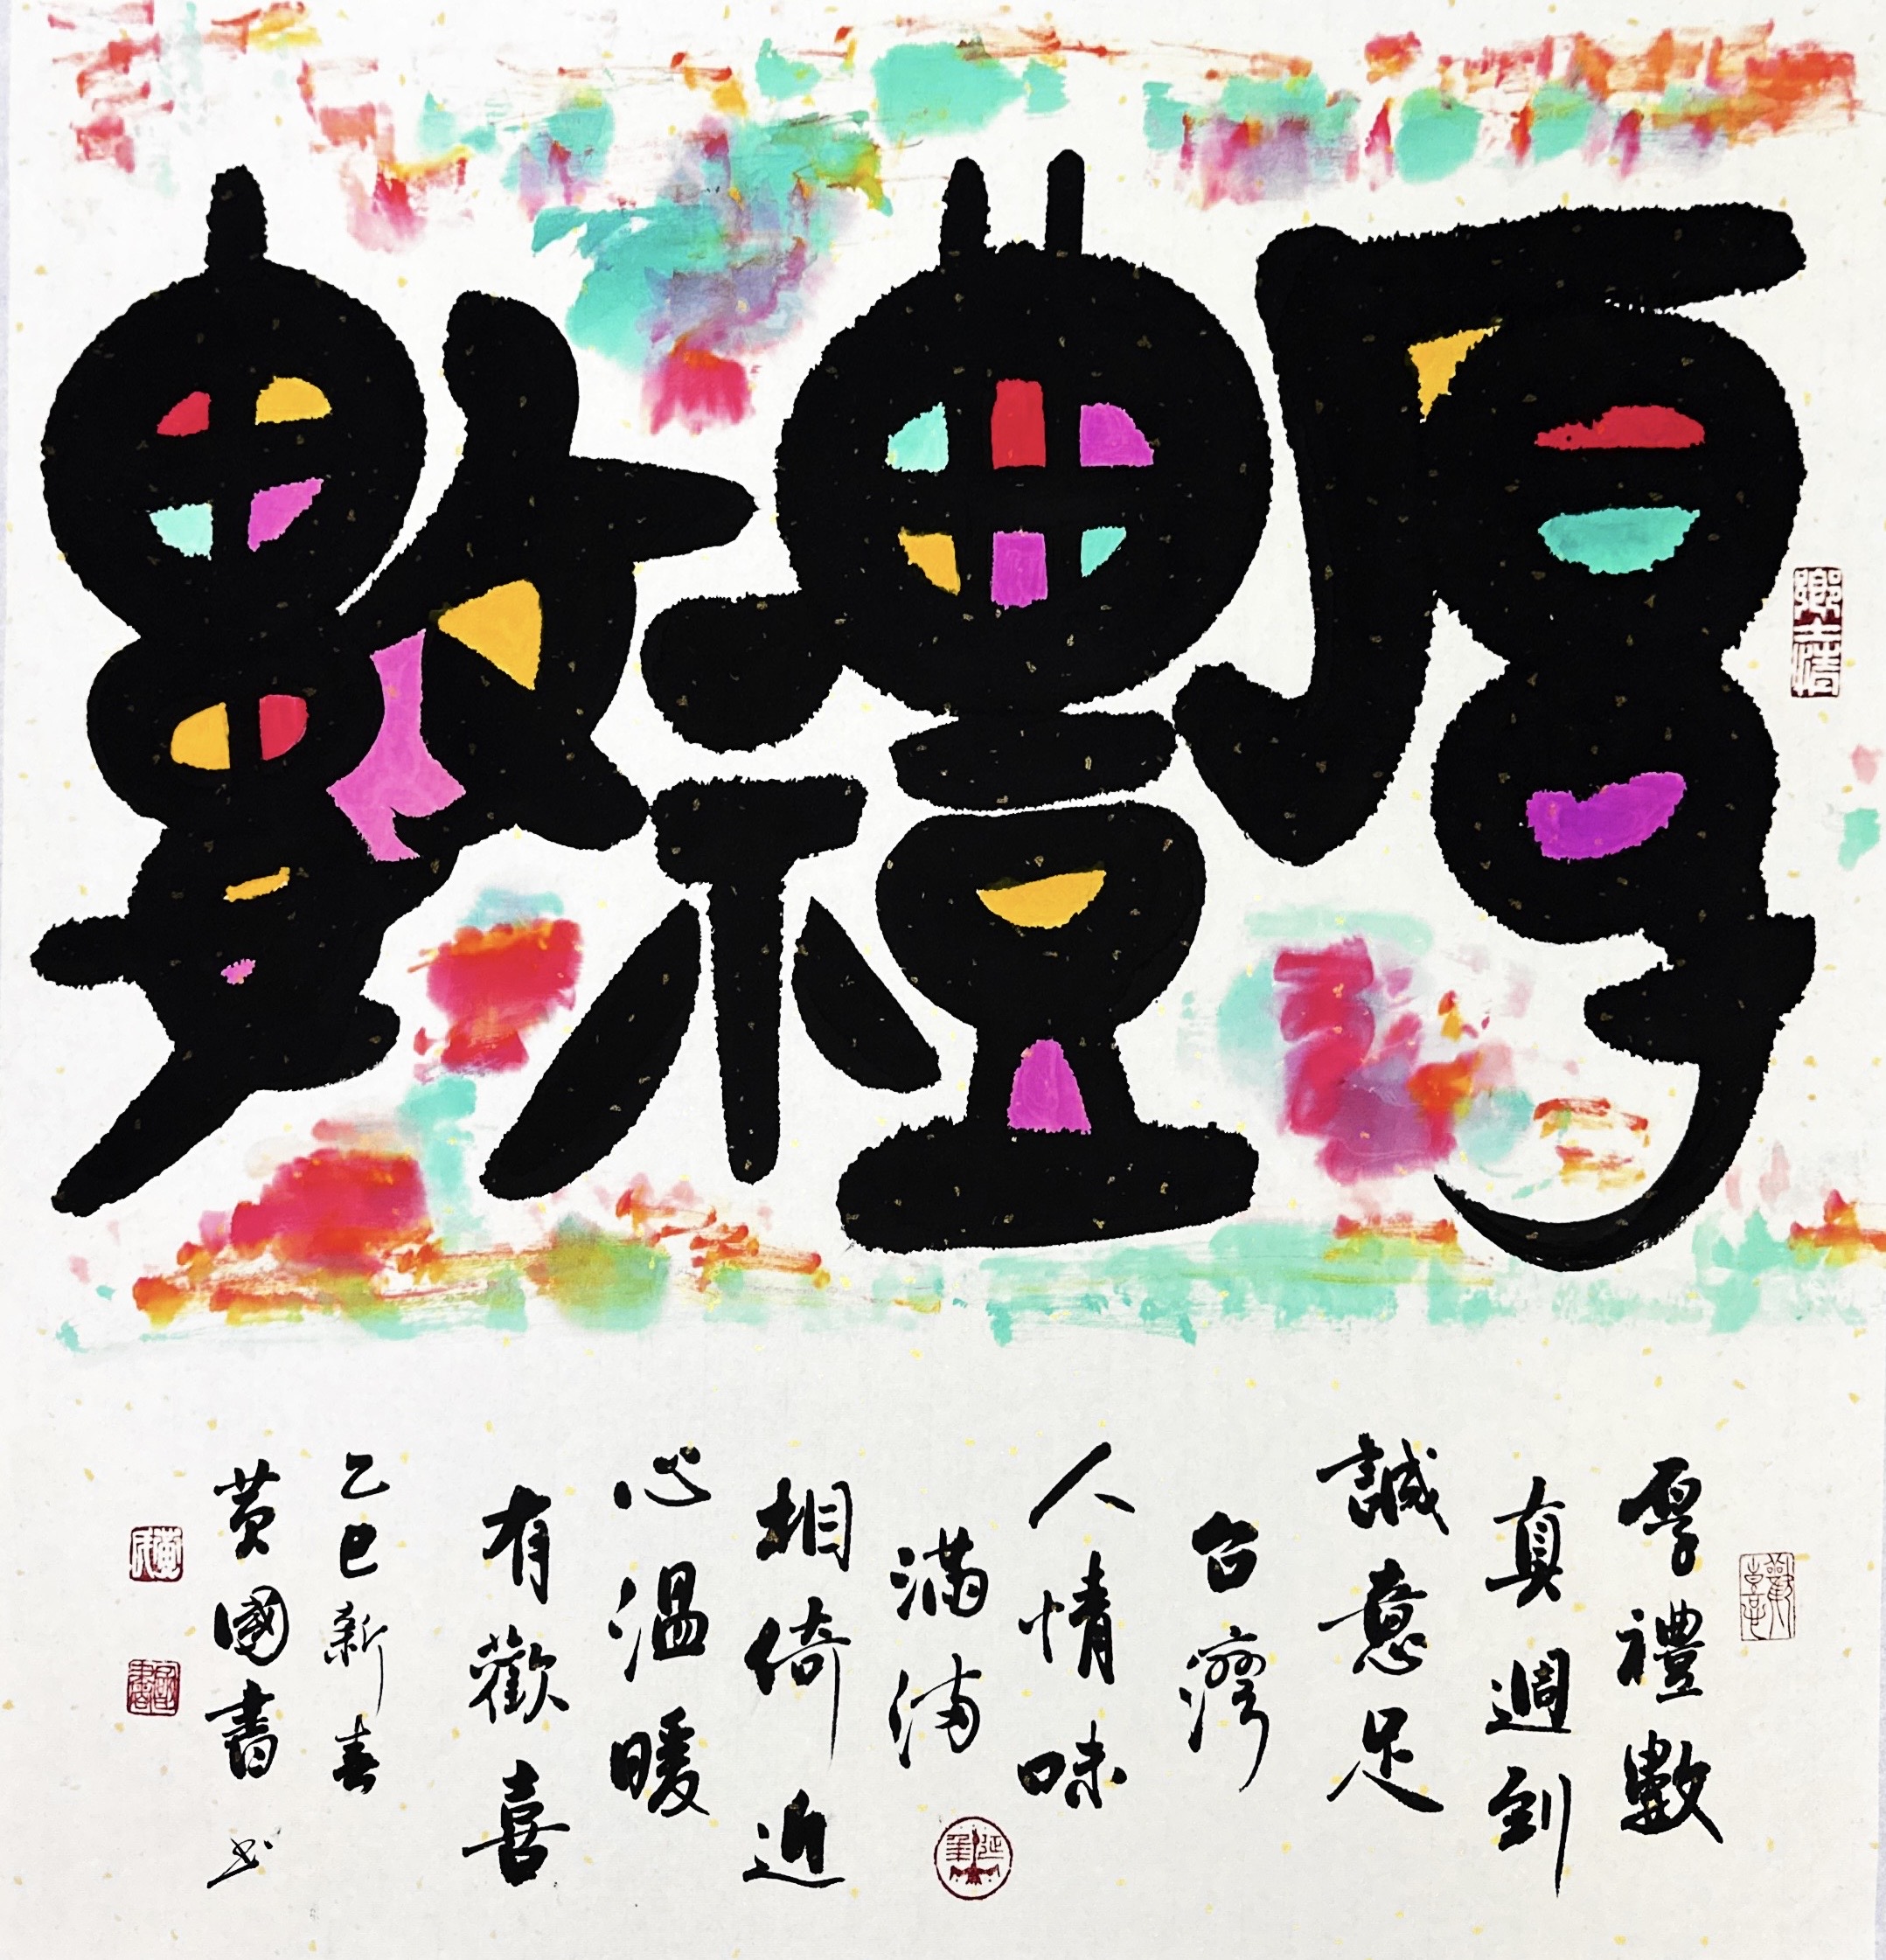 厚禮數
厚禮數
真週到
誠意足
台灣
人情味
滿滿
相倚近
心溫暖
有歡喜
乙巳新春
黃國書
鄉土情